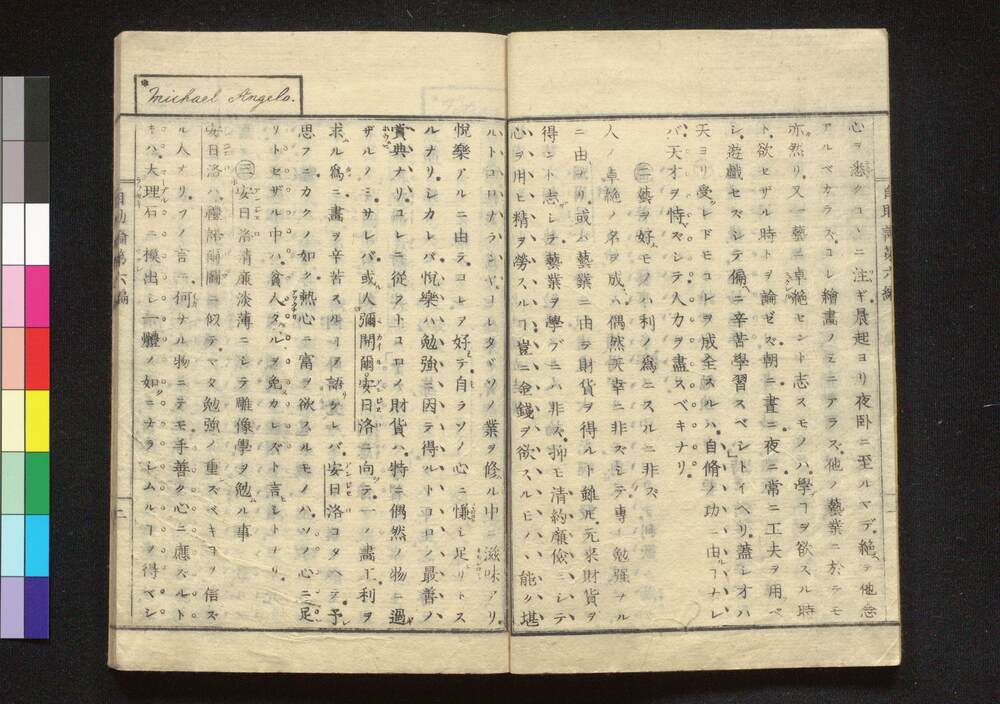 心ヲ悉クコヽニ注ギ晨起ヨリ夜卧ニ至ルマデ絶テ他念
アルベカラズコレ繪畫ノミニアラズ他ノ藝業ニ於テモ
亦然リ又一藝ニ卓絶セント志スモノハ學ブヿヲ欲スル時
ト欲セザル時トヲ論ゼズ朝ニ晝ニ夜ニ常ニ工夫ヲ用ベ
シ遊戯セズシテ偏ニ辛苦學習スベシトイヘリ蓋シオハ
天ヨリ受レドモコレヲ成全スルハ自脩ノ功ニ由ルヿナレ
バ天才ヲ恃ズシテ人力ヲ盡スベキナリ
㊁藝ヲ好ムモノハ利ノ爲ニスルニ非ズ
人ノ卓絶ノ名ヲ成ハ偶然天幸ニ非ズシテ專ラ勉強スル
ニ由ナリ或ハ藝業ニ由テ財貨ヲ得ルト雖𪜈元來財貨ヲ
得ント志シテ藝業ヲ學ブニハ非ズ抑モ清約廉儉ニシテ
心ヲ用ヒ精ヲ勞スルヿ豈ニ金錢ヲ欲スルモノハ能ク堪
ルトコロナランヤコレタヾソノ業ヲ修ル中ニ滋味アリ
悅樂アルニ由テコレヲ好テ自ラソノ心ニ慊シ足リトス
ルナリシカレバ悅樂ハ勉強ニ因テ得ルトコロノ最善ノ
賞典ナリコレニ從フトコロノ財貨ハ特ニ偶然ノ物ニ過
ザルノミサレバ或人彌開爾安日洛ニ向テ一ノ畵工利ヲ
求ル爲ニ畫ヲ辛苦スルヿヲ語ケレバ安日洛コタヘテ予
思フニカクノ如ク熱心ニ富ヲ欲スルモノハソノ心ニ足
リトセザル中ハ貧人タルヲ免カレズト言シトナリ
㊂安日洛清廉淡薄ニシテ雕像學ヲ勉ル事
安日洛ハ禮諾爾圖ニ似テマタ勉強ノ重ズベキヿヲ信ズ
ル人ナリソノ言ニ何ナル物ニテモ手善ク心ニ應ズルト
キハ大理石ニ模出シ一體ノ如クナラシムルヿヲ得ベシ
*Michael Angelo.
自助論第六編
自助論第六編